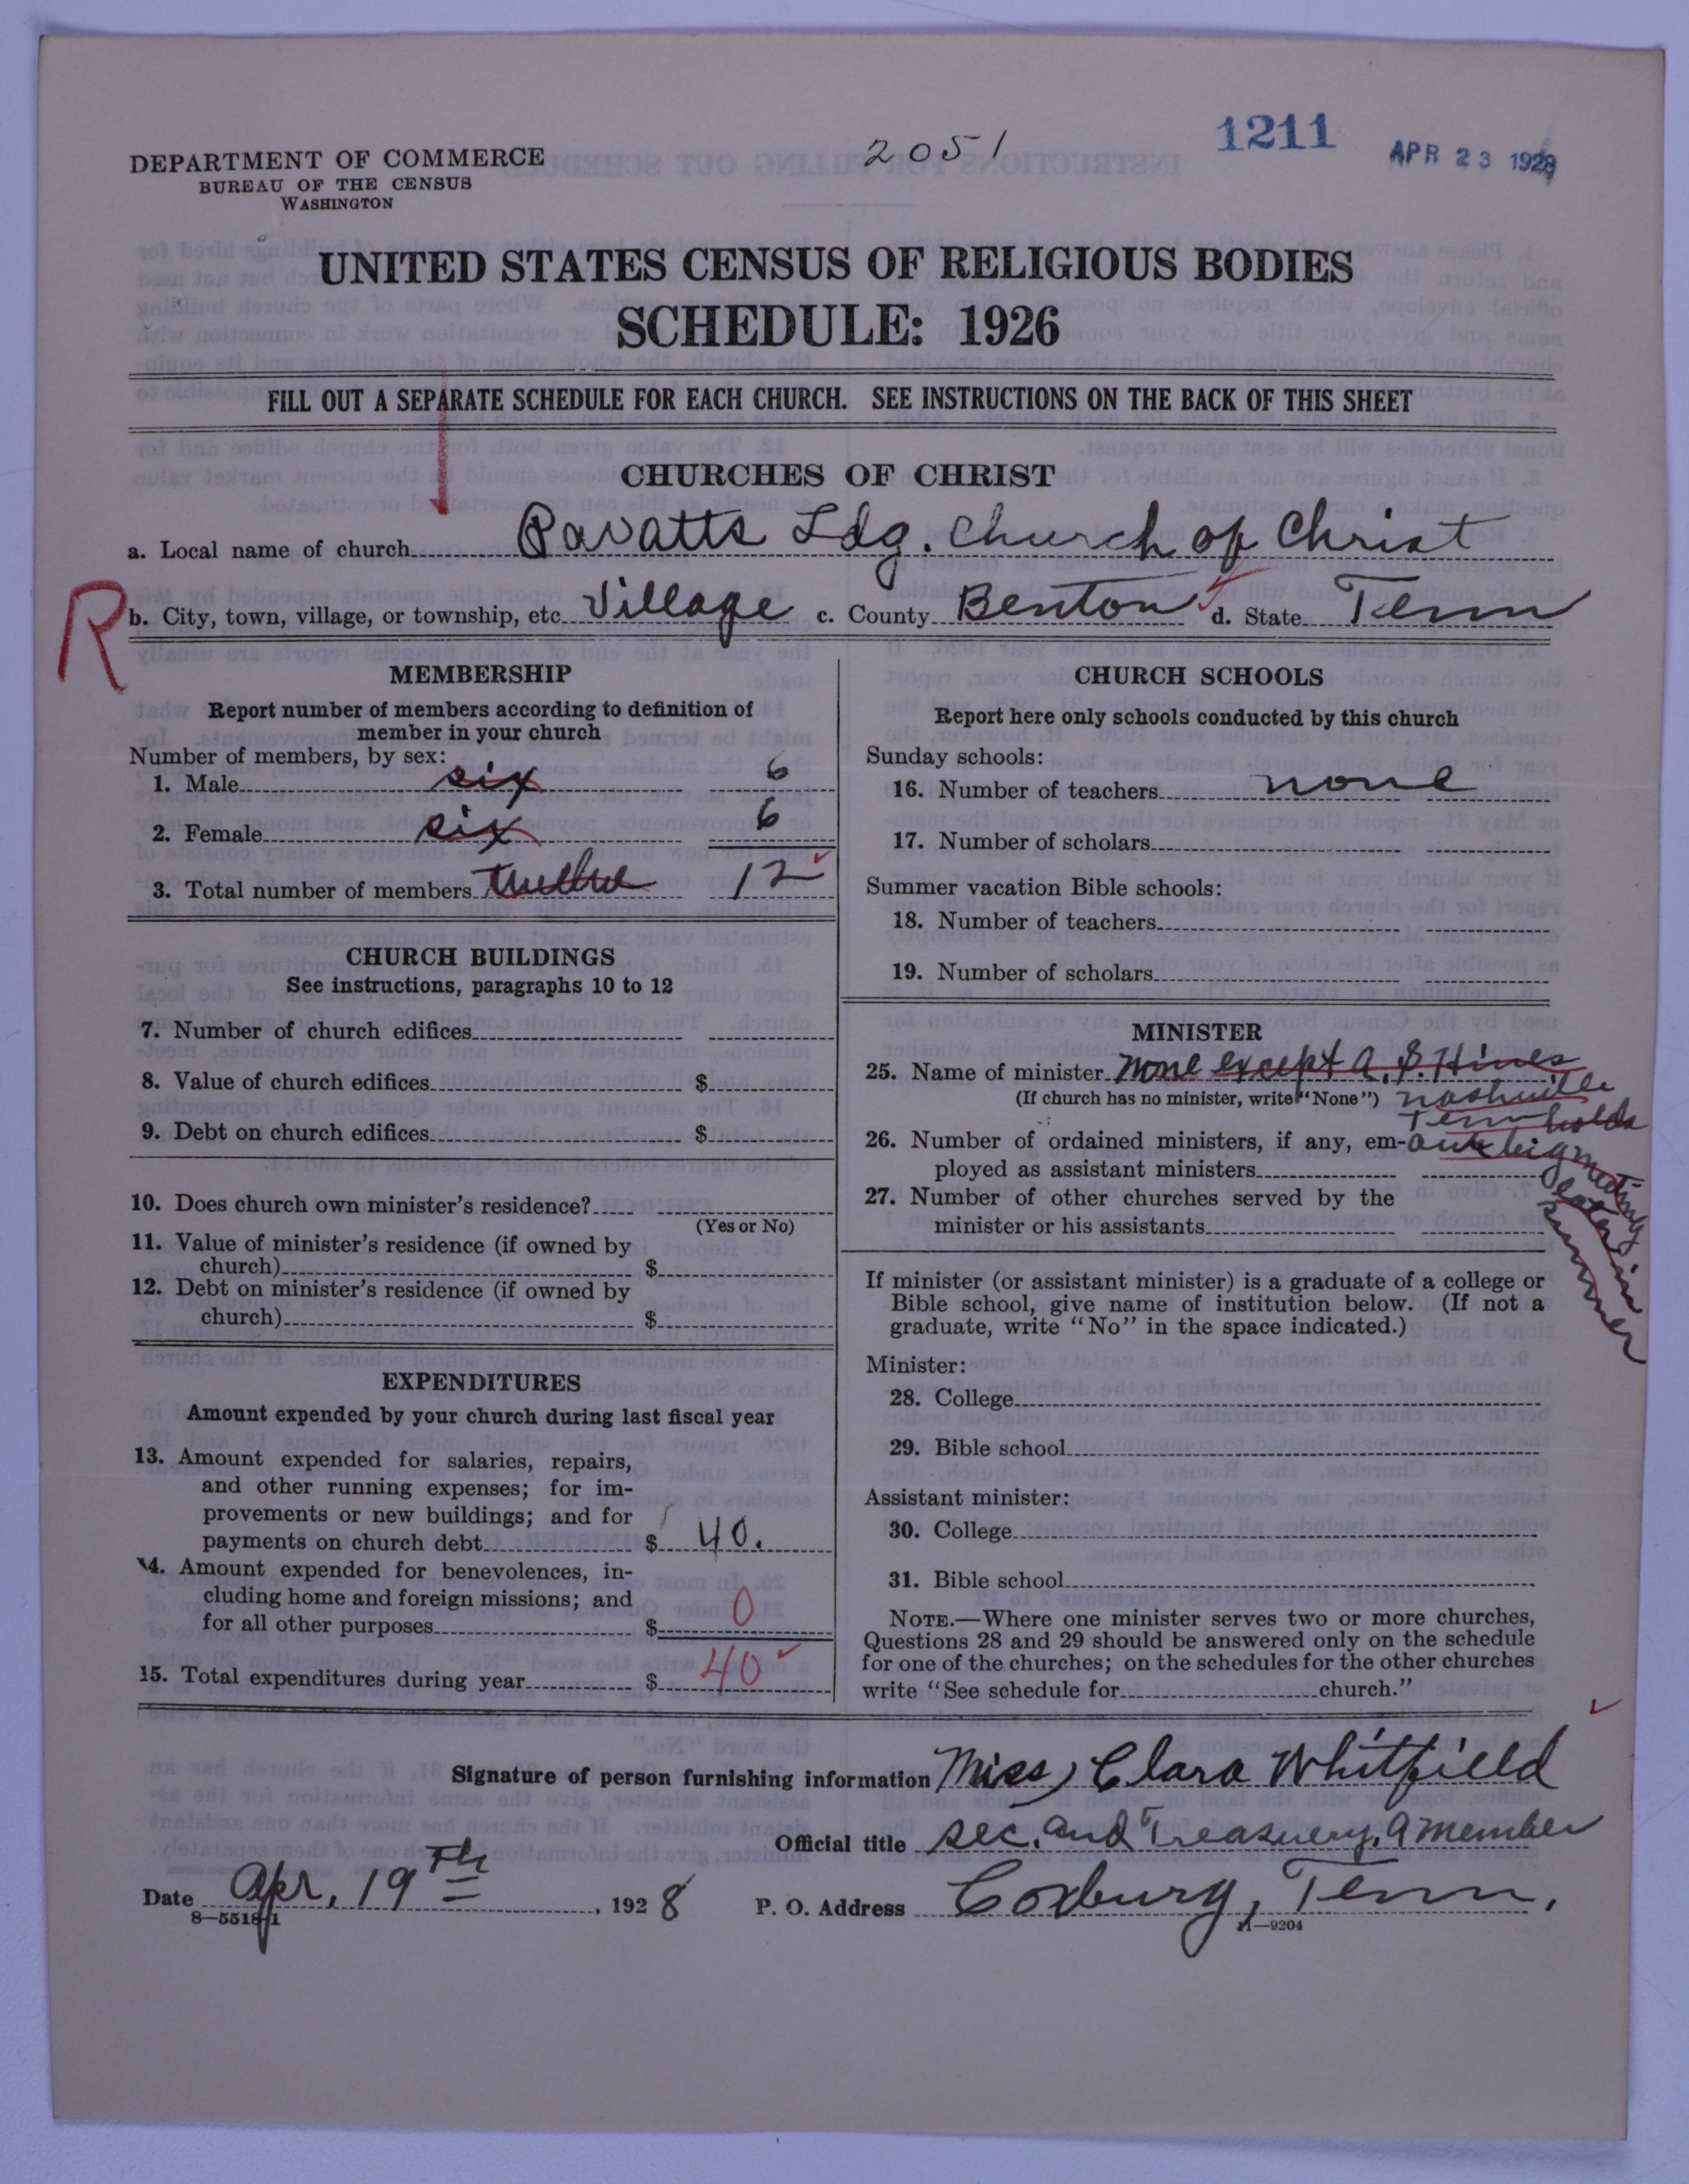 2051
1211
APR 23 1928
DEPARTMENT OF COMMERCE
BUREAU OF THE CENSUS
WASHINGTON
UNITED STATES CENSUS OF RELIGIOUS BODIES
SCHEDULE: 1926
FILL OUT A SEPARATE SCHEDULE FOR EACH CHURCH. SEE INSTRUCTIONS ON THE BACK OF THIS SHEET
CHURCHES OF CHRIST
a. Local name of church Pavatts Ldg. Church of Christ
R
b. City, town, village, or township, etc. Village c. County Benton d. State Tenn
MEMBERSHIP
Report number of members according to definition of
member in your church
Number of members, by sex:
1. Male six 6
2. Female six 6
3. Total number of members twelve 12
CHURCH BUILDINGS
See instructions, paragraphs 10 to 12
7. Number of church edifices
8. Value of church edifices $
9. Debt on church edifices $
10. Does church own minister's residence?
(Yes or No)
11. Value of minister's residence (if owned by
church) $
12. Debt on minister's residence (if owned by
church) $
EXPENDITURES
Amount expended by your church during last fiscal year
13. Amount expended for salaries, repairs,
and other running expenses; for im-
provements or new buildings; and for
payments on church debt $ 40.
14. Amount expended for benevolences, in-
cluding home and foreign missions; and
for all other purposes $ 0
15. Total expenditures during year $ 40
CHURCH SCHOOLS
Report here only schools conducted by this church
Sunday schools:
16. Number of teachers none
17. Number of scholars
Summer vacation Bible schools:
18. Number of teachers
19. Number of scholars
MINISTER
25. Name of minister None except A. S. Hines
(If church has no minister, write "None") Nashville
Tenn holds
26. Number of ordained ministers, if any, em- our big meeting
ployed as assistant ministers
later in
summer
27. Number of other churches served by the
minister or his assistants
If minister (or assistant minister) is a graduate of a college or
Bible school, give name of institution below. (If not a
graduate, write "No" in the space indicated.)
Minister:
28. College
29. Bible school
Assistant minister:
30. College
31. Bible school
NOTE.—Where one minister serves two or more churches,
Questions 28 and 29 should be answered only on the schedule
for one of the churches; on the schedules for the other churches
write "See schedule for church."
Signature of person furnishing information Miss Clara Whitfield
Official title sec. and Treasurery. a member
Date Apr. 19th, 1928 P. O. Address Coxburg, Tenn.
8—5518f1
11—9204